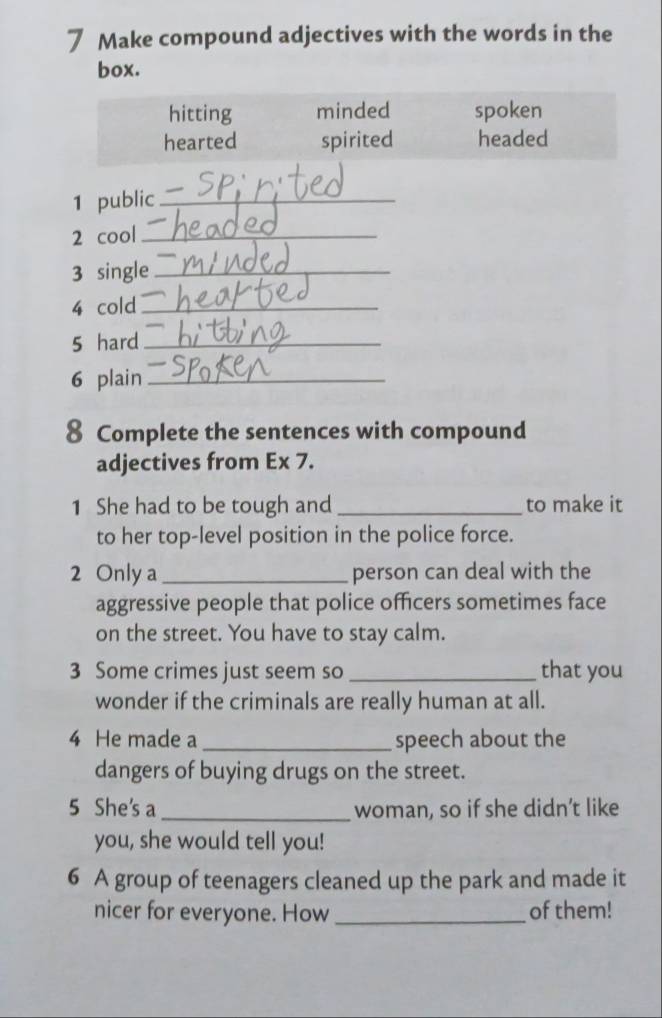 7 Make compound adjectives with the words in the
box.
hitting minded spoken
hearted spirited headed
1 public - spirited
2 cool - headed
3 single - minded
4 cold - hearted
5 hard - hitting
6 plain - spoken
8 Complete the sentences with compound
adjectives from Ex 7.
1 She had to be tough and ________ to make it
to her top-level position in the police force.
2 Only a ________ person can deal with the
aggressive people that police officers sometimes face
on the street. You have to stay calm.
3 Some crimes just seem so ________ that you
wonder if the criminals are really human at all.
4 He made a ________ speech about the
dangers of buying drugs on the street.
5 She's a ________ woman, so if she didn't like
you, she would tell you!
6 A group of teenagers cleaned up the park and made it
nicer for everyone. How ________ of them!